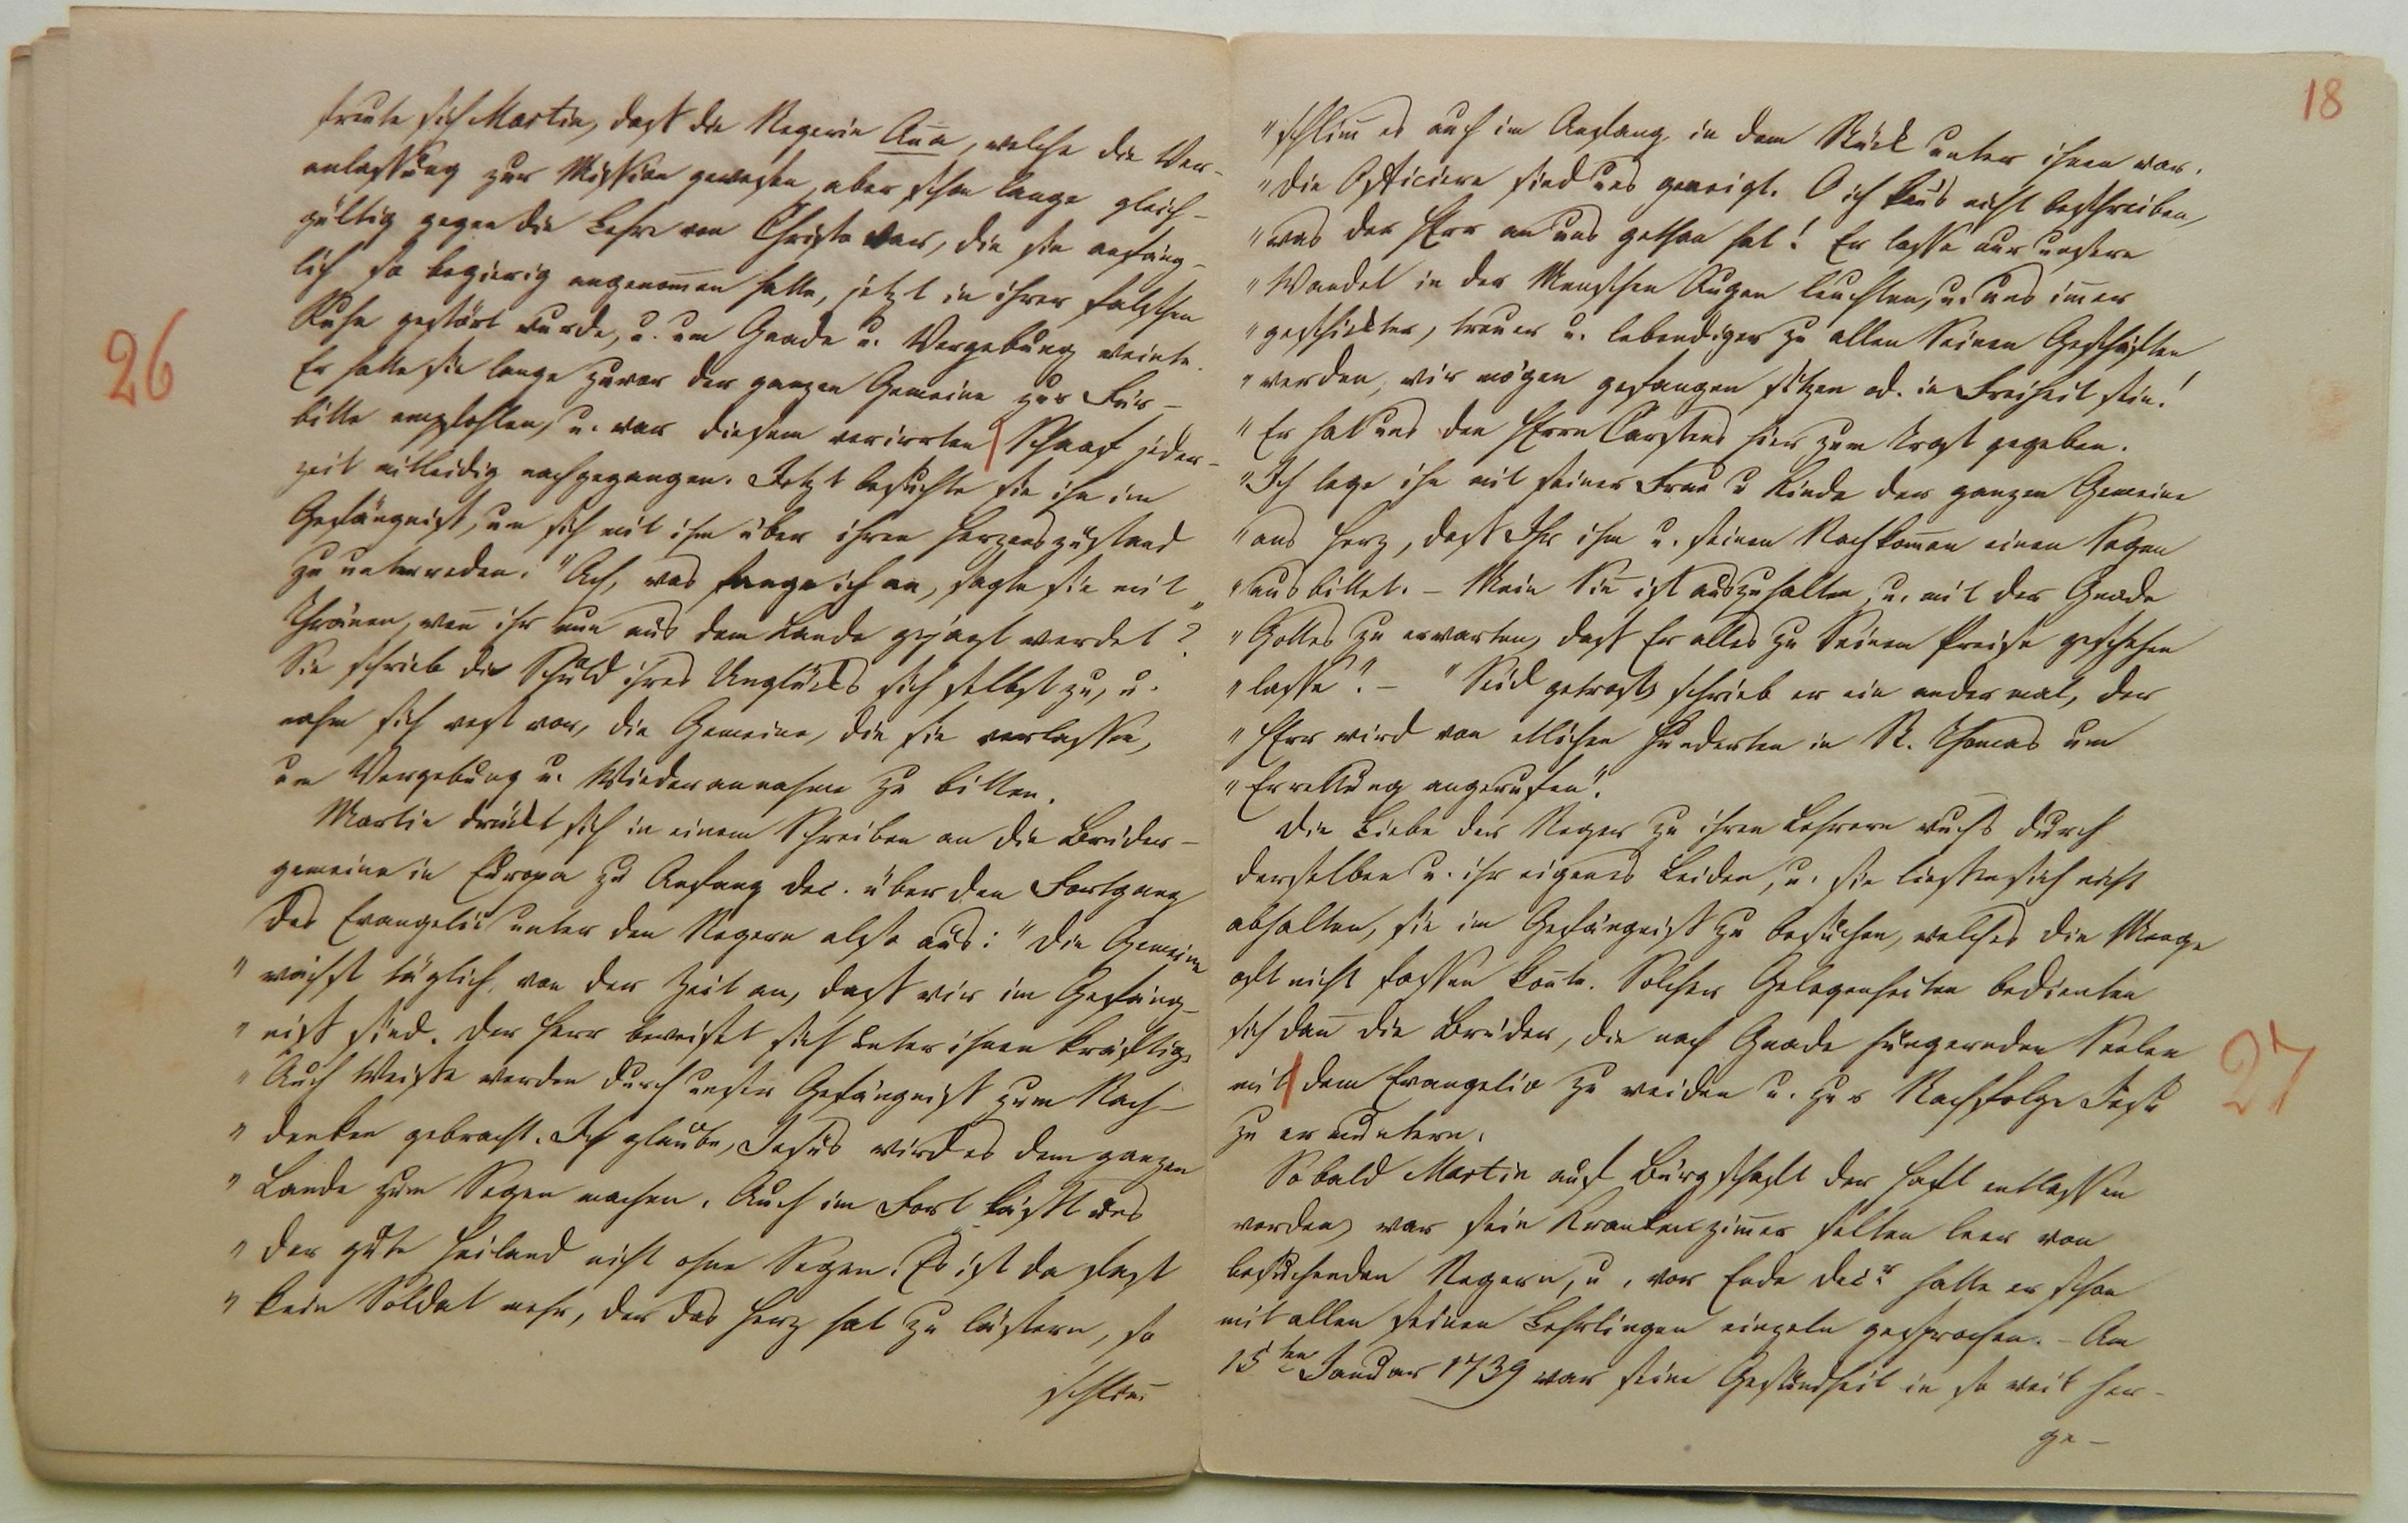 freute sich Martin, dass die Negerin Anna, welche die Ver-
anlassung zur Mission gewesen, aber schon lange gleich-
gültig gegen die Lehre von Christo war, die sie anfäng-
lich so begierig angenommen hatte, jetzt in ihrer falschen
Ruhe gestört wurde, u. um Gnade u. Vergebung weinte.
Er hatte sie lange zuvor der ganzen Gemeine zur Für-
26
bitte empfohlen, u. war diesem verirrten Schaaf jeder-
zeit mitleidig nachgegangen. Jetzt besuchte sie ihn im
Gefängniss, um sich mit ihm über ihren Herzenszustand
zu unterreden. "Ach, was fange ich an, sagte sie mit
Thränen, wenn ihr nun aus dem Lande gejagt werdet?"
Sie schrieb die Schuld ihres Unglücks sich selbst zu, u.
nahm sich vest vor, die Gemeine, die sie verlassen,
um Vergebung u. Wiederannahme zu bitten.
Martin drückt sich in einem Schreiben an die Brüder-
gemeine in Europa zu Anfang Dec. über den Fortgang
des Evangelii unter den Negern also aus: "Die Gemeine
" wächst täglich, von der Zeit an, dass wir im Gefäng-
" niss sind. Der Herr beweiset sich unter ihnen kräftig.
" Auch Weisse werden durch unser Gefängniss zum Nach-
" denken gebracht. Ich glaube, Jesus wird es dem ganzen
" Lande zum Segen machen. Auch im Fort lässt uns
" der gute Heiland nicht ohne Segen. Es ist da fast
" kein Soldat mehr, der das Herz hat zu lästern, so
schlimm
18
" schlimm es auch im Anfang in dem Stück unter ihnen war.
" Die Officiere sind uns geneigt. O ich kan's nicht beschreiben,
" was der HErr an uns gethan hat! Er lasse nur unsern
" Wandel in der Menschen Augen leuchten, u. uns immer
" geschickter, treuer u. lebendiger zu allen Seinen Geschäften
" werden, wir mögen gefangen sitzen od. in Freiheit sein!
" Er hat uns den HErrn Carstens hier zum Trost gegeben.
" Ich lege ihn mit seiner Frau u Kinde der ganzen Gemeine
" ans Herz, dass Ihr ihm u. seinen Nachkommen einen Segen
" ausbittet. – Mein Sinn ist auszuhalten, u. mit der Gnade
" Gottes zu erwarten, dass Er alles zu Seinem Preise geschehen
" lasse". – "Seid getrost, schrieb er ein ander mal, der
" HErr wird von etlichen Hunderten in St. Thomas um
" Errettung angerufen".
Die Liebe der Neger zu ihren Lehrern wuchs durch
derselben u. ihr eigenes Leiden, u. sie liessen sich nicht
abhalten, sie im Gefängniss zu besuchen, welches die Menge
oft nicht fassen konnte. Solcher Gelegenheiten bedienten
sich dann die Brüder, die nach Gnade hungernden Seelen
27
mit dem Evangelio zu weiden u. zur Nachfolge Jesu
zu ermuntern.
Sobald Martin auf Bürgschaft der Haft entlassen
worden, war sein Krankenzimmer selten leer von
besuchenden Negern, u. vor Ende Decr hatte er schon
mit allen seinen Lehrlingen einzeln gesprochen. – Am
15ten Januar 1739 war seine Gesundheit in so weit her-
ge-